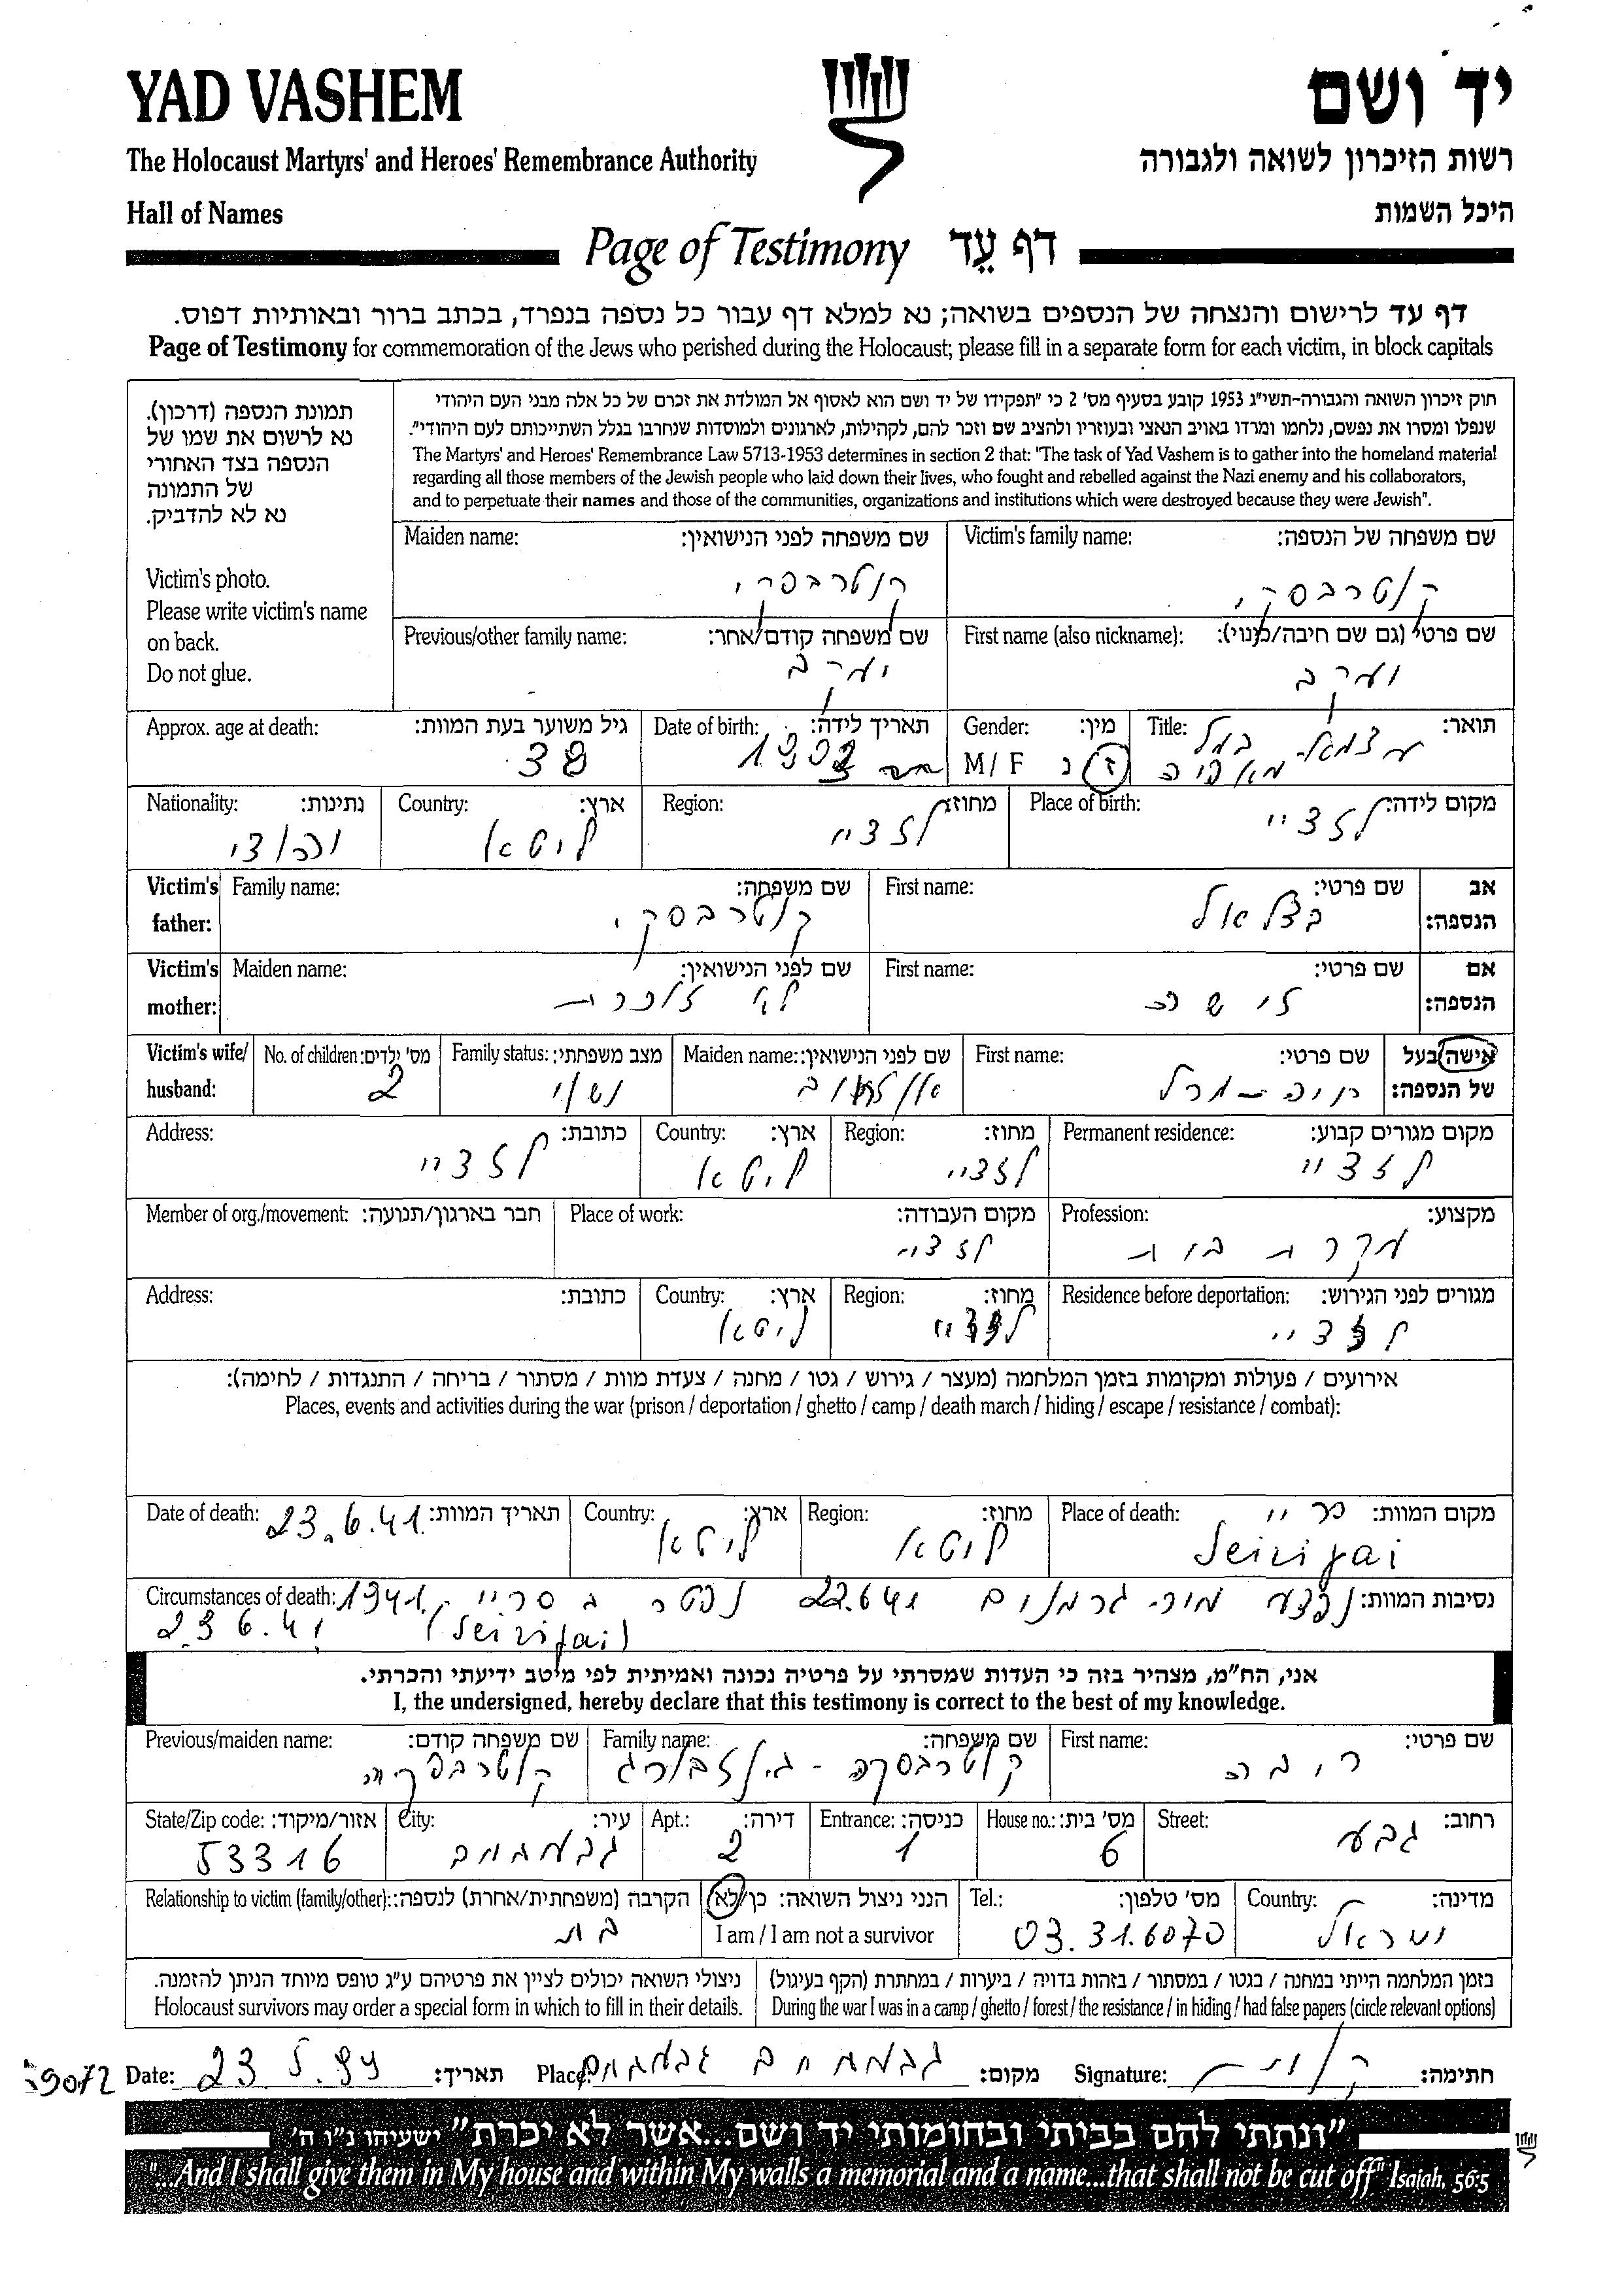 YAD VASHEM
יד ושם
The Holocaust Martyrs' and Heroes' Remembrance Authority
רשות הזיכרון לשואה ולגבורה
Hall of Names
היכל השמות
Page of Testimony דף עֵד
דף עד לרישום והנצחה של הנספים בשואה; נא למלא דף עבור כל נספה בנפרד, בכתב ברור ובאותיות דפוס.
Page of Testimony for commemoration of the Jews who perished during the Holocaust; please fill in a separate form for each victim, in block capitals
תמונת הנספה (דרכון).
נא לרשום את שמו של
הנספה בצד האחורי
של התמונה
נא לא להדביק.
Victim's photo.
Please write victim's name
on back.
Do not glue.
חוק זיכרון השואה והגבורה-תשי"ג 1953 קובע בסעיף מס' 2 כי "תפקידו של יד ושם הוא לאסוף אל המולדת את זכרם של כל אלה מבני העם היהודי
שנפלו ומסרו את נפשם, נלחמו ומרדו באויב הנאצי ובעוזריו ולהציב שם וזכר להם, לקהילות, לארגונים ולמוסדות שנחרבו בגלל השתייכותם לעם היהודי".
The Martyrs' and Heroes' Remembrance Law 5713-1953 determines in section 2 that: "The task of Yad Vashem is to gather into the homeland material
regarding all those members of the Jewish people who laid down their lives, who fought and rebelled against the Nazi enemy and his collaborators,
and to perpetuate their names and those of the communities, organizations and institutions which were destroyed because they were Jewish".
Victim's family name: שם משפחה של הנספה:
קנטרבסקי
Maiden name: שם משפחה לפני הנישואין:
קנטרבסקי
First name (also nickname): שם פרטי (גם שם חיבה/כינוי):
יעקב
Previous/other family name: שם משפחה קודם/אחר:
יעקב
Title: תואר:
בעל מאפיה
Gender: מין:
M / F ז נ
Date of birth: תאריך לידה:
Approx. age at death: גיל משוער בעת המוות:
38
Place of birth: מקום לידה:
לזדיי
Region: מחוז:
לזדיי
Country: ארץ:
ליטא
Nationality: נתינות:
יהודי
Victim's father: אב הנספה:
First name: שם פרטי:
בצלאל
Family name: שם משפחה:
קנטרבסקי
Victim's mother: אם הנספה:
First name: שם פרטי:
Maiden name: שם לפני הנישואין:
Victim's wife/ husband: אישה/בעל של הנספה:
First name: שם פרטי:
Maiden name: שם לפני הנישואין:
Family status: מצב משפחתי:
נשוי
No. of children: מס' ילדים:
2
Permanent residence: מקום מגורים קבוע:
לזדיי
Region: מחוז:
לזדיי
Country: ארץ:
ליטא
Address: כתובת:
לזדיי
Profession: מקצוע:
Place of work: מקום העבודה:
לזדיי
Member of org./movement: חבר בארגון/תנועה:
Residence before deportation: מגורים לפני הגירוש:
לזדיי
Region: מחוז:
לזדיי
Country: ארץ:
ליטא
Address: כתובת:
אירועים / פעולות ומקומות בזמן המלחמה (מעצר / גירוש / גטו / מחנה / צעדת מוות / מסתור / בריחה / התנגדות / לחימה):
Places, events and activities during the war (prison / deportation / ghetto / camp / death march / hiding / escape / resistance / combat):
Place of death: מקום המוות: סריי
Seirijai
Region: מחוז:
ליטא
Country: ארץ:
ליטא
Date of death: תאריך המוות: 23.6.41
Circumstances of death: נסיבות המוות: נפצע מירי גרמנים 22.6.41 נפטר ב סריי 1941
(Seirijai) 23.6.41
אני, הח"מ, מצהיר בזה כי העדות שמסרתי על פרטיה נכונה ואמיתית לפי מיטב ידיעתי והכרתי.
I, the undersigned, hereby declare that this testimony is correct to the best of my knowledge.
First name: שם פרטי:
ריבה
Family name: שם משפחה:
קנטרבסקה - גינזבורג
Previous/maiden name: שם משפחה קודם:
Street: רחוב:
גבע
House no.: מס' בית:
6
Entrance: כניסה:
1
Apt.: דירה:
2
City: עיר:
גבעתיים
State/Zip code: אזור/מיקוד:
53316
Country: מדינה:
ישראל
Tel.: מס' טלפון:
03.31.6070
הנני ניצול השואה: כן/לא
I am / I am not a survivor
Relationship to victim (family/other): הקרבה (משפחתית/אחרת) לנספה:
בת
בזמן המלחמה הייתי במחנה / בגטו / במסתור / בזהות בדויה / ביערות / במחתרת (הקף בעיגול)
During the war I was in a camp / ghetto / forest / the resistance / in hiding / had false papers (circle relevant options)
ניצולי השואה יכולים לציין את פרטיהם ע"ג טופס מיוחד הניתן להזמנה.
Holocaust survivors may order a special form in which to fill in their details.
Date: 23.5.99 תאריך: Place: גבעתיים מקום: Signature: חתימה:
"ונתתי להם בביתי ובחומותי יד ושם...אשר לא יכרת" ישעיהו נ"ו ה'
"...And I shall give them in My house and within My walls a memorial and a name...that shall not be cut off" Isaiah, 56:5